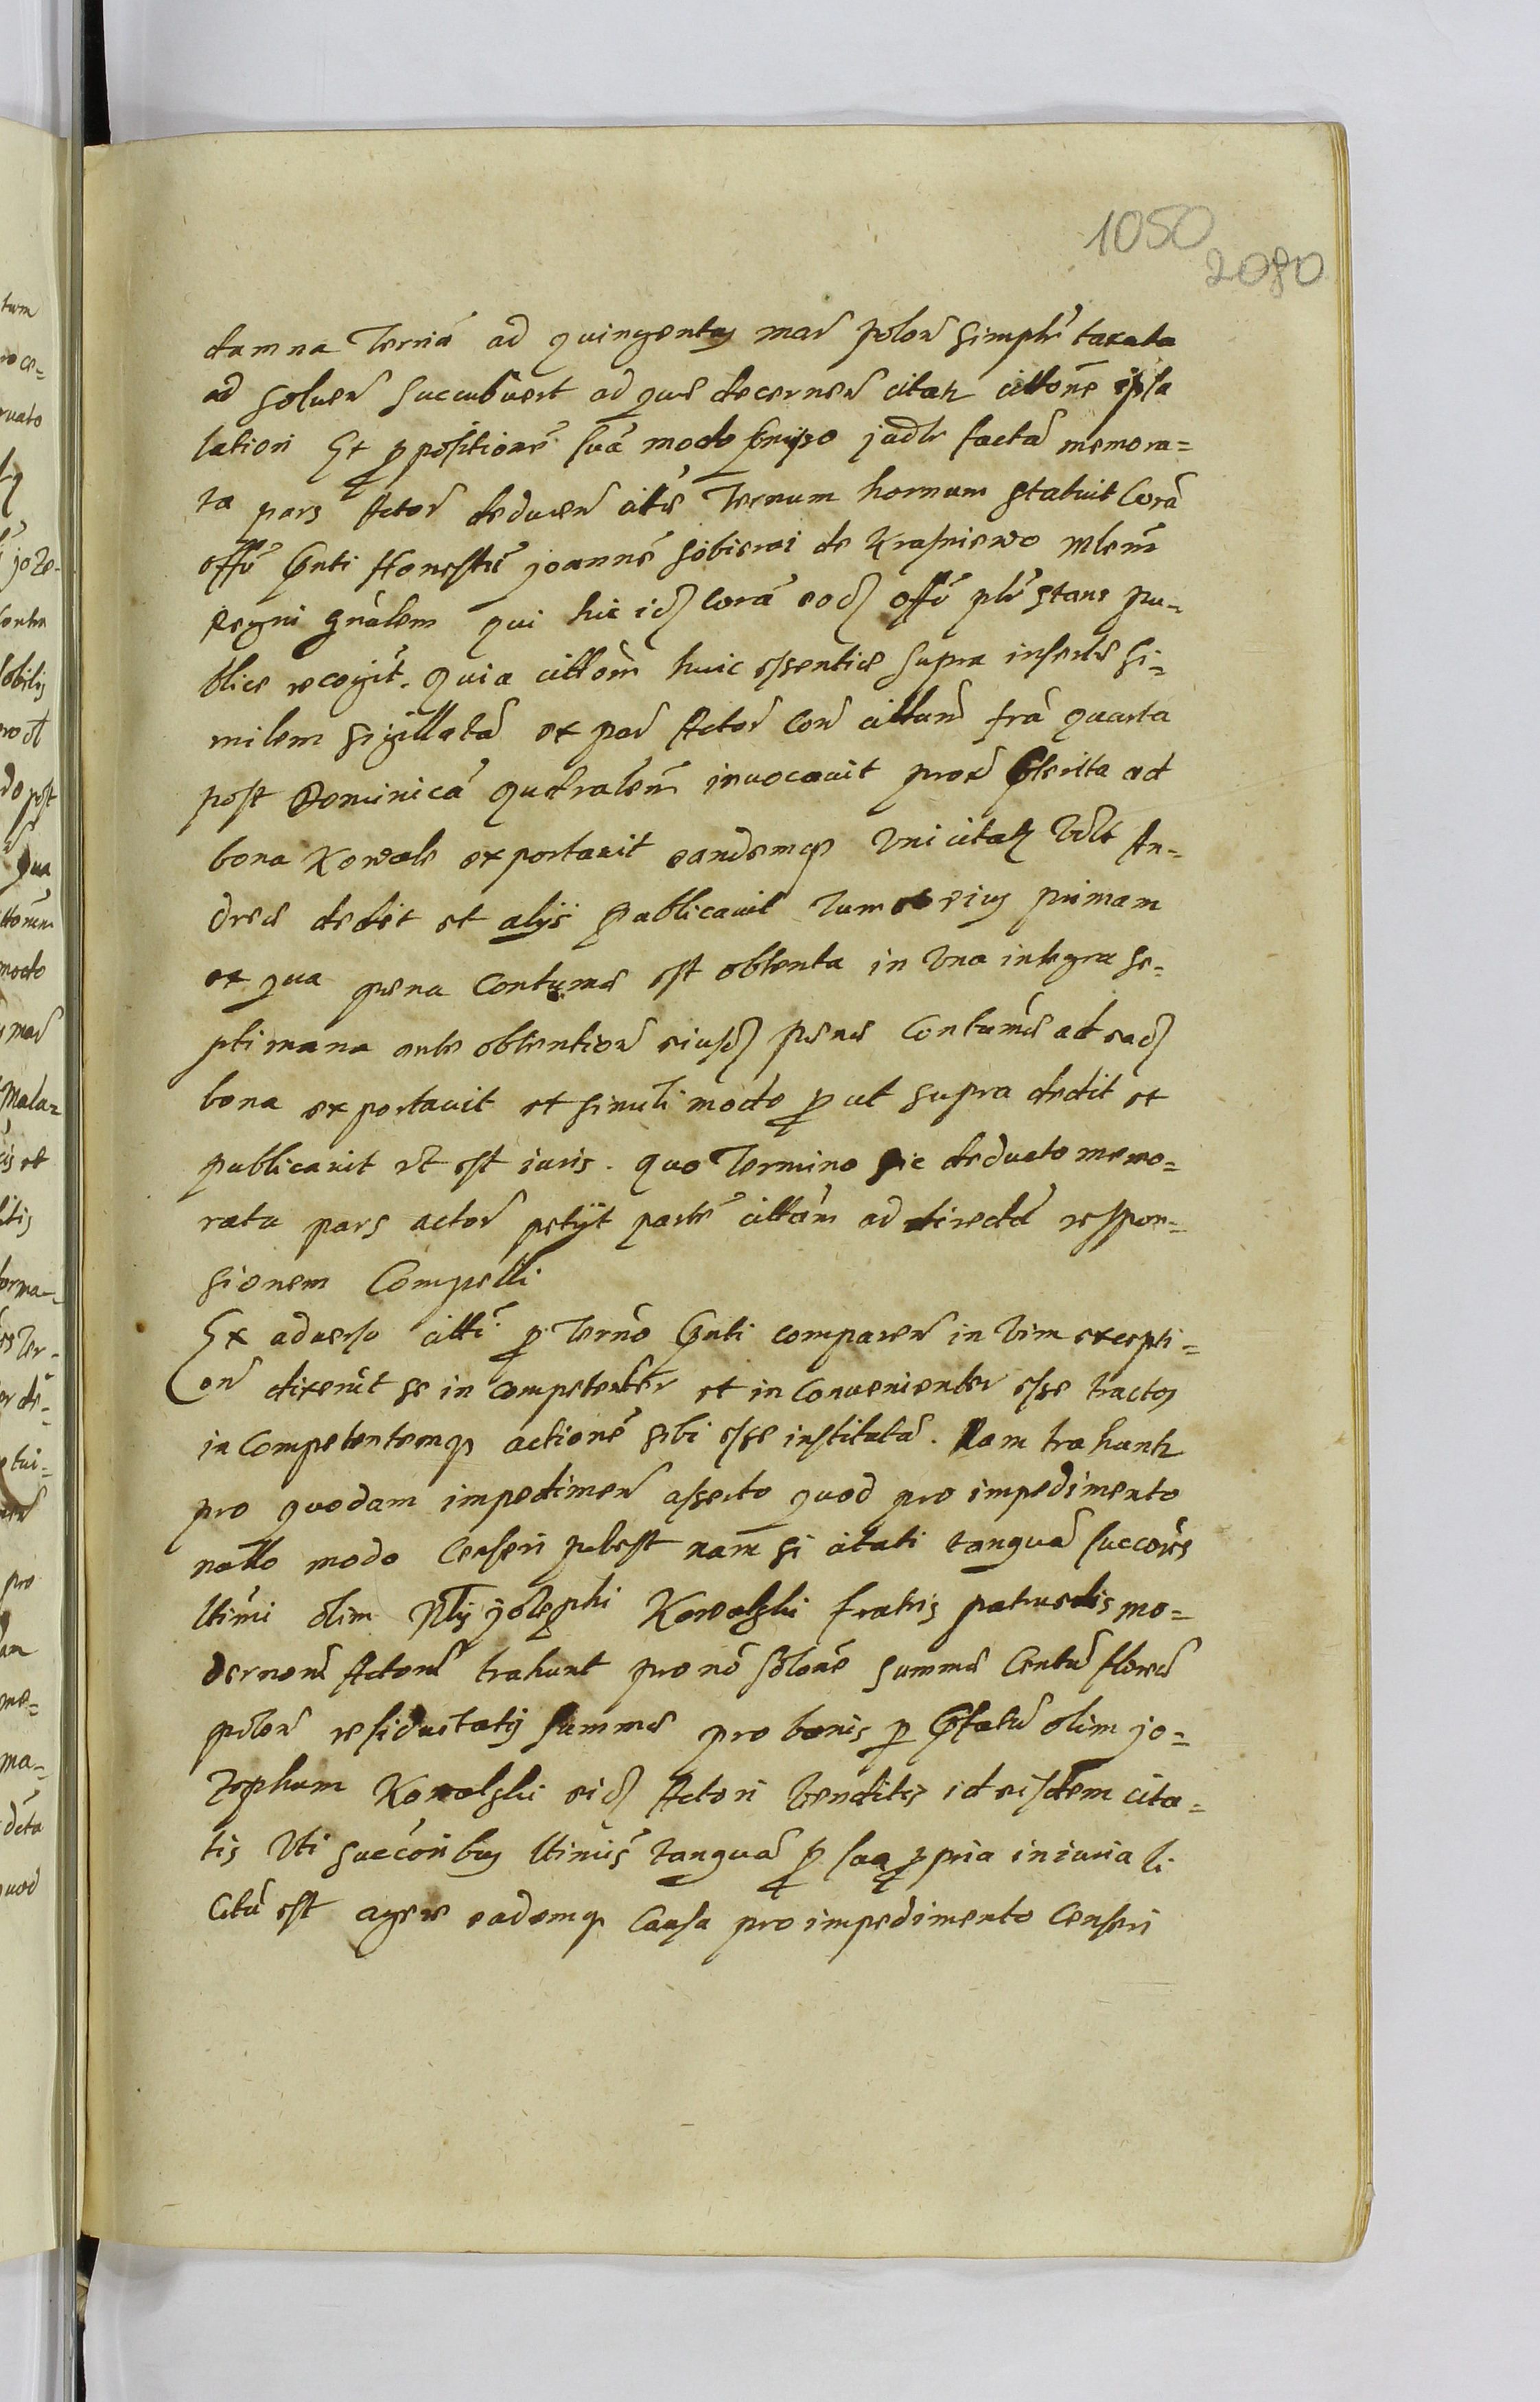 1050
2080
damna Terria ad quingentas mar polon simplr taxata
ad soluen succubuert ad que decernen citat cittone ipsa
lation Et ppositione sua modo pmisso judlr facta memora=
ta pars Actor deducen Ternum hornum statuit Cora
offo pnti Honestu joanne sobierai de Krasniewo Mlem
Regni gnalem qui hic id cora eod offo plr stans pu=
blice recogt. quia cittom huic essentie supra inserte si=
milem sigillata ex par Actor con cittum fra quarta
post Dominica qudralem inuocauit prox pterita ad
bona Kowale exportauit eandemq Vni citat An=
dree dedit et alys publicauit Tum eius primam
ex qua pena Contuma est obtenta in Vna integra se=
ptimana ante obtention eiusd pene Contumae ad ead
bona exportauit et simili modo p ut supra dedit et
publicauit vt est iuris. quo Termino sic deducto memo=
rata pars actor petyt parte cittam ad directa respon=
sionem Compelli
Ex aduerso citti p Terno pnti comparen in Vim excepti=
on dixerut se in competenter et in Conuenienter esse tractos
in Competentemq actione sibi esse instituta. Nam trahunt
pro quodam impedimen asserto quod pro impedimento
nullo modo Censeri potest nam si citati tanqua succores
ltimi olim Nlis josephi Kowalski fratris patruelis mo=
dernoru Actoru trahunt pro no solone summe Centu floren
polon residuitatis summe pro bonis p pfatu olim jo=
zephum Kowalski eid Actori Venditis id eisdem cita=
tis Vti succoribus ltimis tanqua p sua ppria iniuria li
Citu est agere eademq Causa pro impedimento Censeri